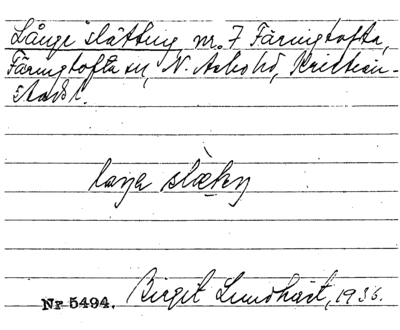 Långe slåttuy nr. 7 Färingtofta,
Färingtofta sn, N. Åsbo hd, Kristian-
stads l.
laŋa
Nr 5494. Birgit Lundhart, 1936.